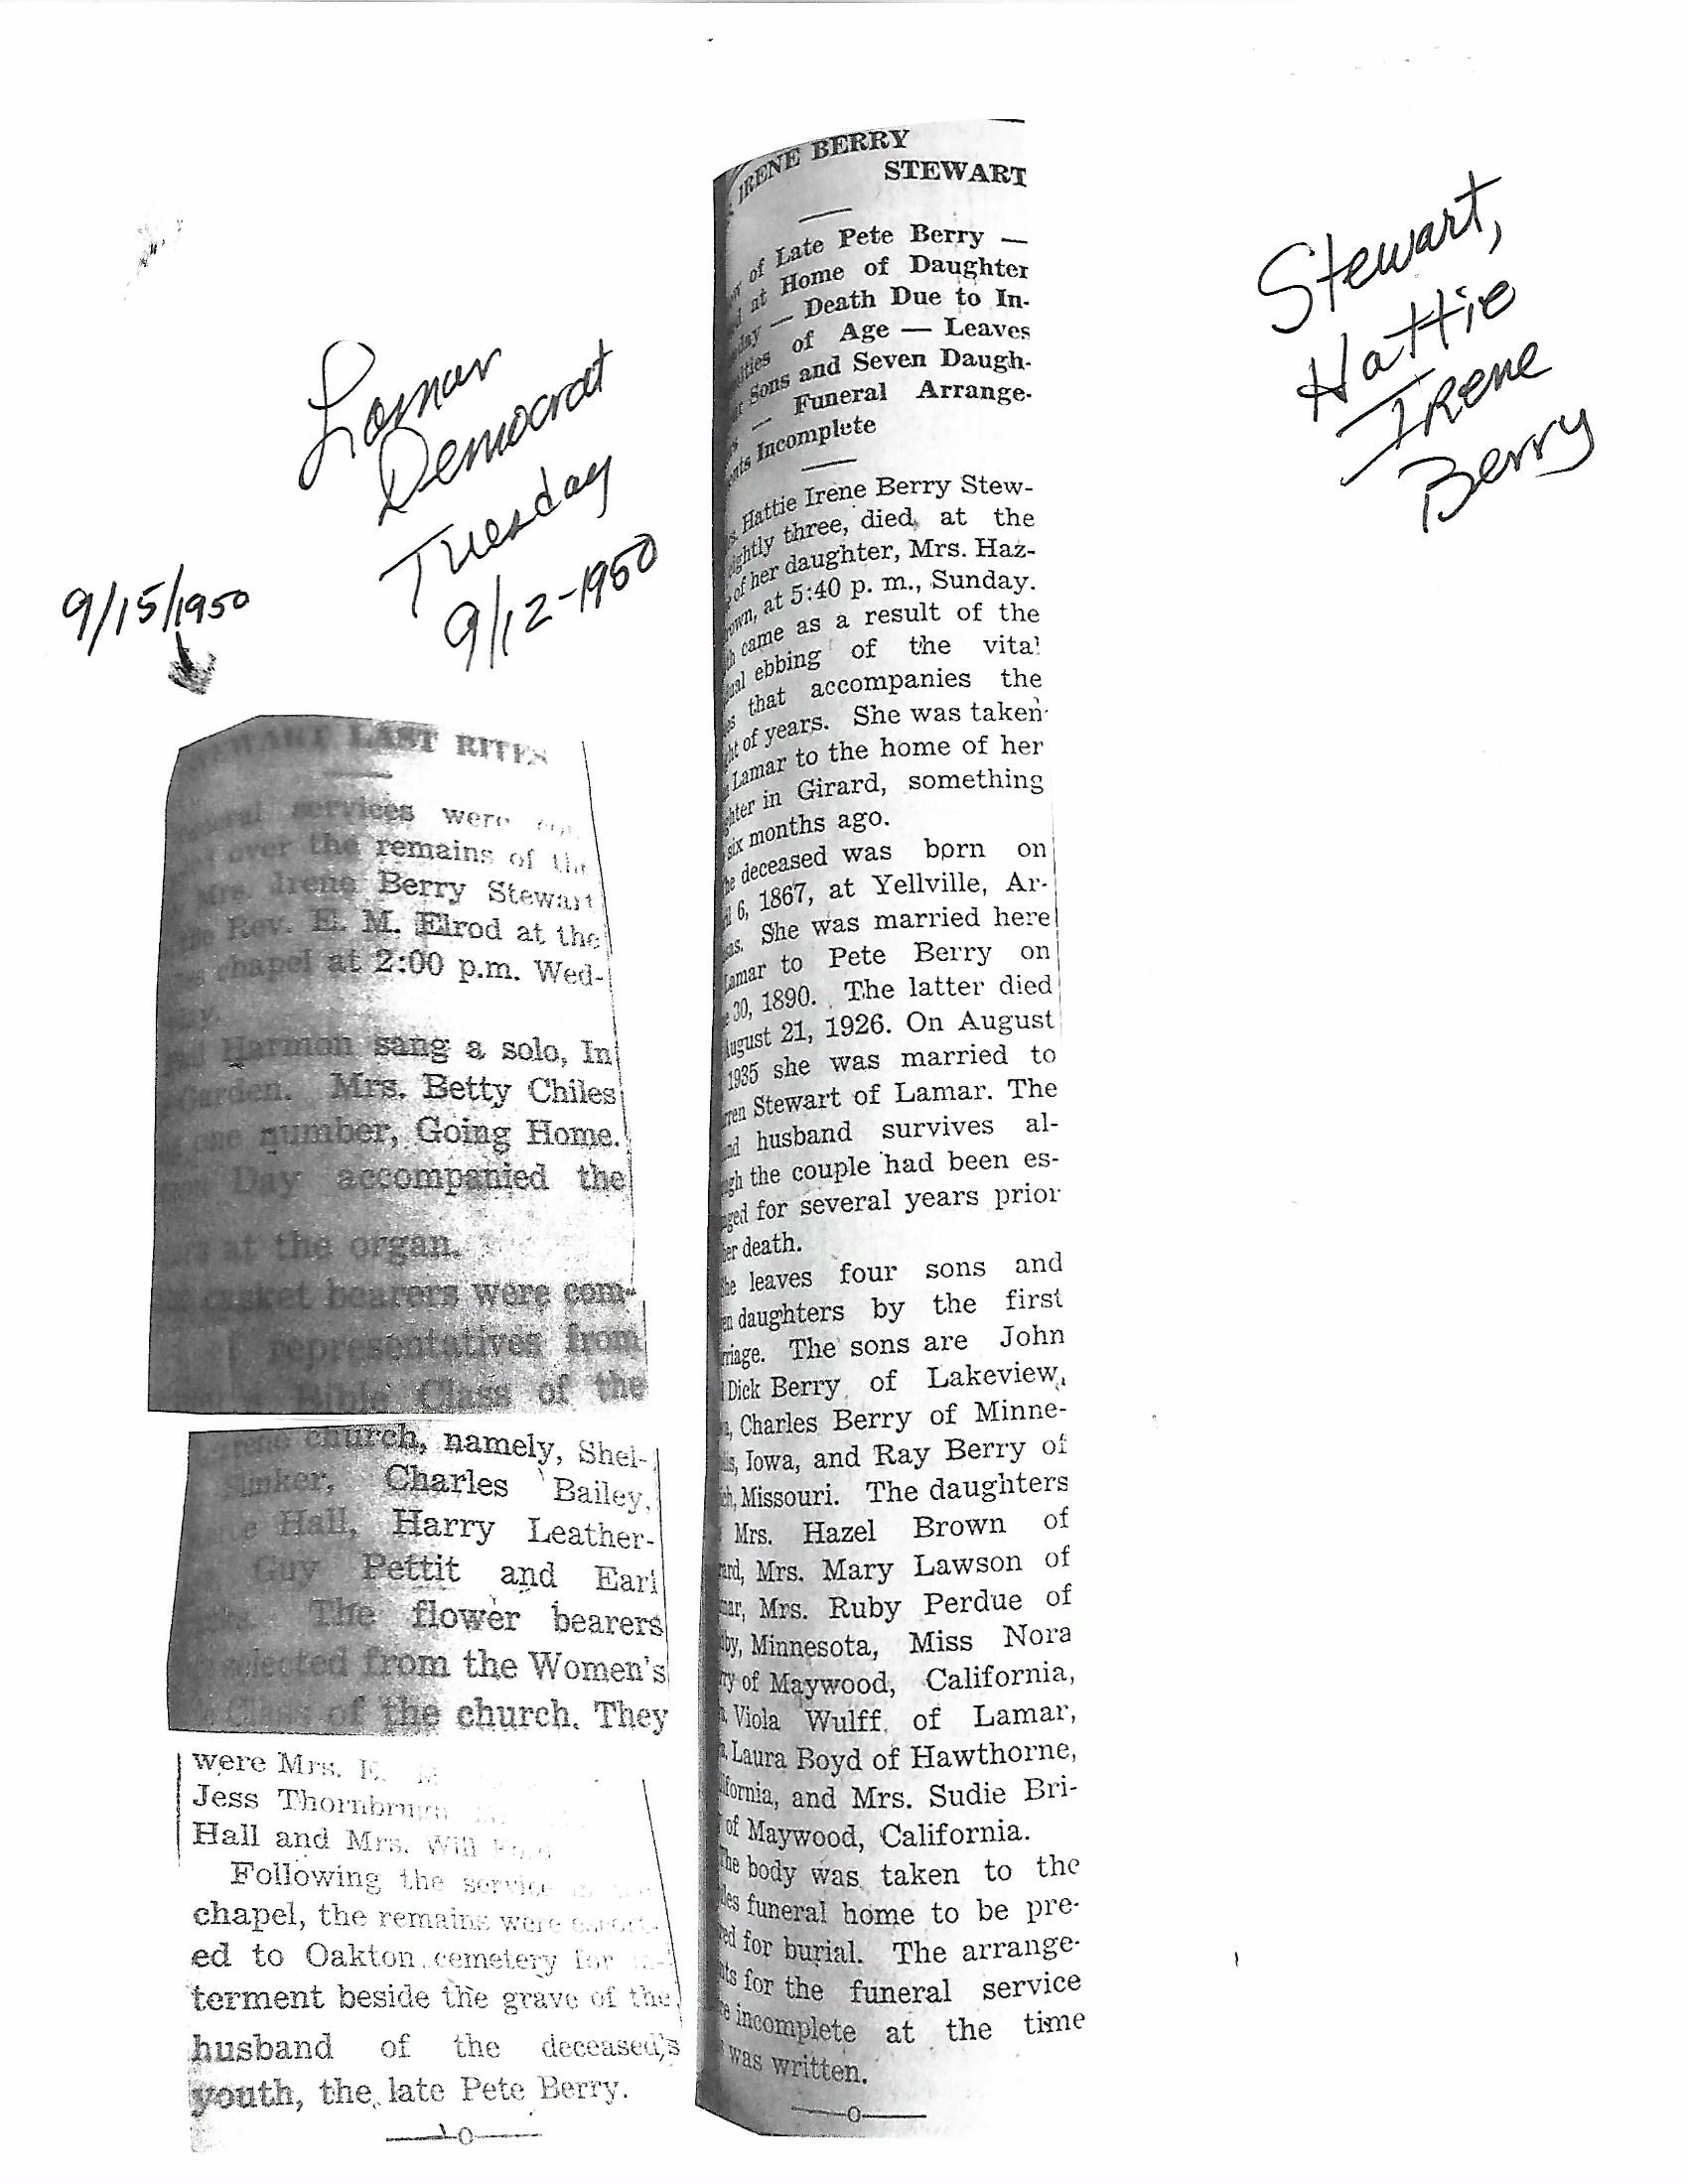 Stewart,
Hattie
Irene
Berry
Lamar
Democrat
Tuesday
9/12-1950
9/15/1950
IRENE BERRY
STEWART
of Late Pete Berry —
at Home of Daughter
— Death Due to In-
of Age — Leaves
Sons and Seven Daugh-
— Funeral Arrange-
Incomplete
Hattie Irene Berry Stew-
eightly three, died at the
of her daughter, Mrs. Haz-
at 5:40 p. m., Sunday.
came as a result of the
ebbing of the vital
that accompanies the
of years. She was taken
Lamar to the home of her
in Girard, something
six months ago.
deceased was born on
6, 1867, at Yellville, Ar-
She was married here
Lamar to Pete Berry on
30, 1890. The latter died
August 21, 1926. On August
1935 she was married to
Stewart of Lamar. The
husband survives al-
the couple had been es-
for several years prior
death.
leaves four sons and
daughters by the first
The sons are John
Dick Berry of Lakeview,
Charles Berry of Minne-
Iowa, and Ray Berry of
Missouri. The daughters
Mrs. Hazel Brown of
Mrs. Mary Lawson of
Mrs. Ruby Perdue of
Minnesota, Miss Nora
of Maywood, California,
Viola Wulff of Lamar,
Laura Boyd of Hawthorne,
and Mrs. Sudie Bri-
of Maywood, California.
body was taken to the
funeral home to be pre-
for burial. The arrange-
for the funeral service
incomplete at the time
was written.
LAST RITES
services were
over the remains of the
Mrs. Irene Berry Stewart
Rev. E. M. Elrod at the
chapel at 2:00 p.m. Wed-
Harmon sang a solo, In
Garden. Mrs. Betty Chiles
one number, Going Home.
Day accompanied the
at the organ.
casket bearers were com-
representatives from
Bible Class of the
church, namely, Shel-
Charles Bailey,
Hall, Harry Leather-
Guy Pettit and Earl
The flower bearers
selected from the Women's
Class of the church. They
were Mrs. E. M.
Jess Thornbrugh
Hall and Mrs. Will
Following the service
chapel, the remains were escort-
ed to Oakton cemetery for in-
terment beside the grave of the
husband of the deceased's
youth, the late Pete Berry.